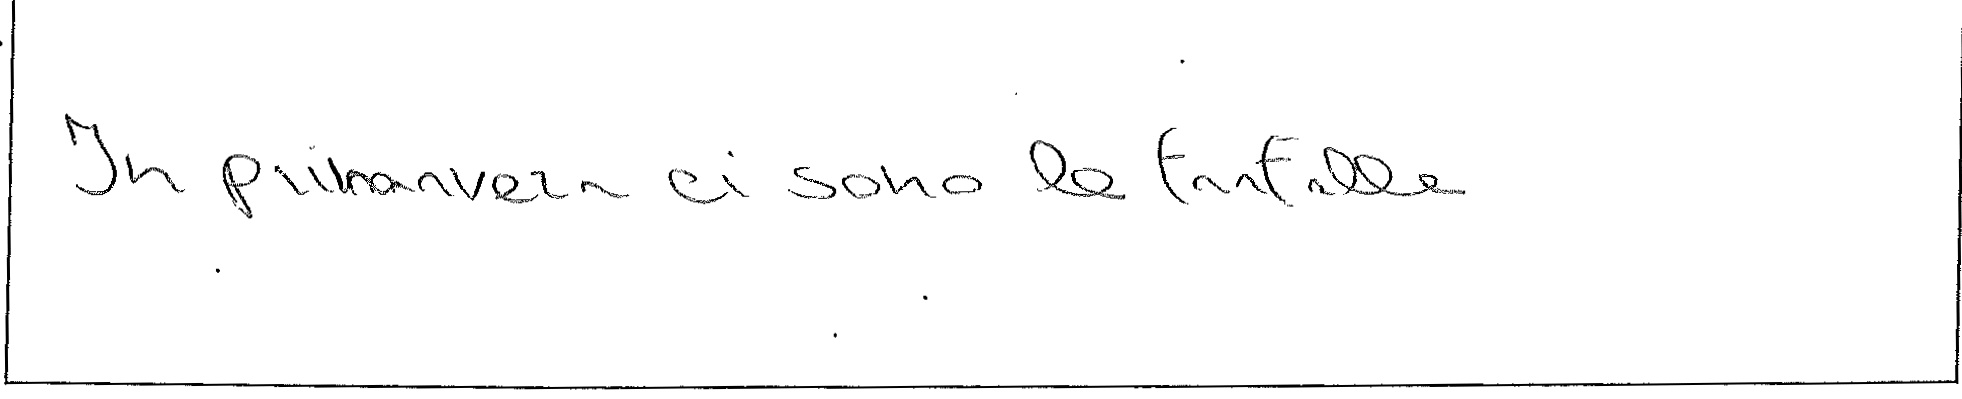 In primanvera ci sono le farfalle